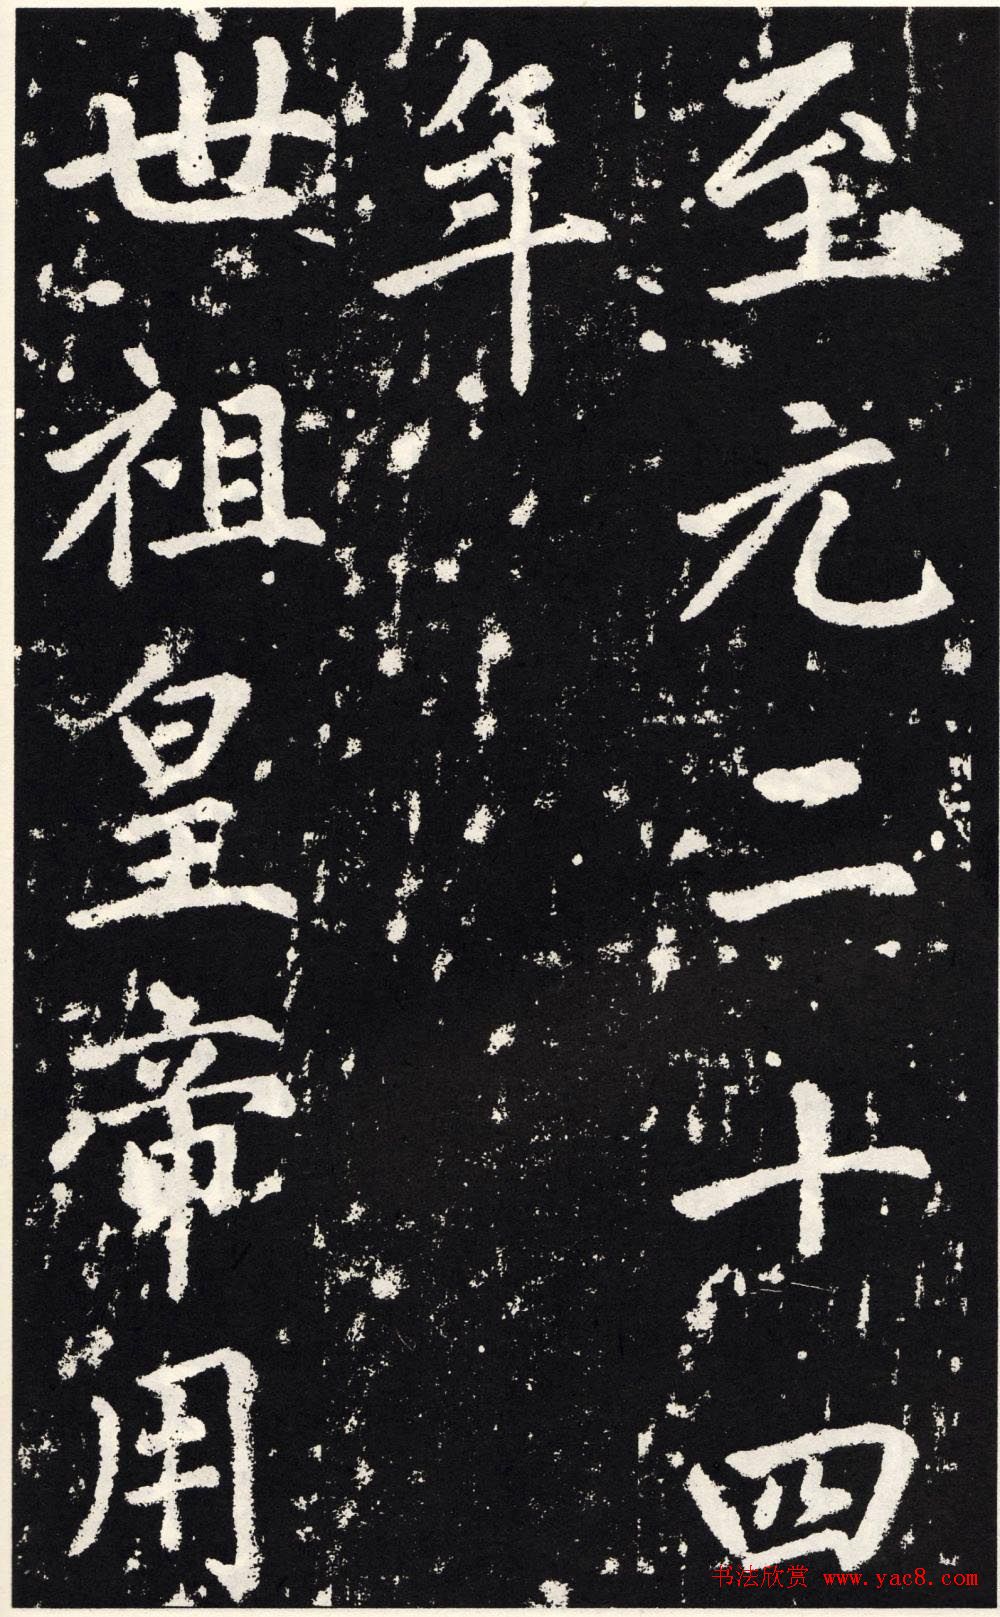 至元二十四
年
世祖皇帝用
书法欣赏 www.yac8.com